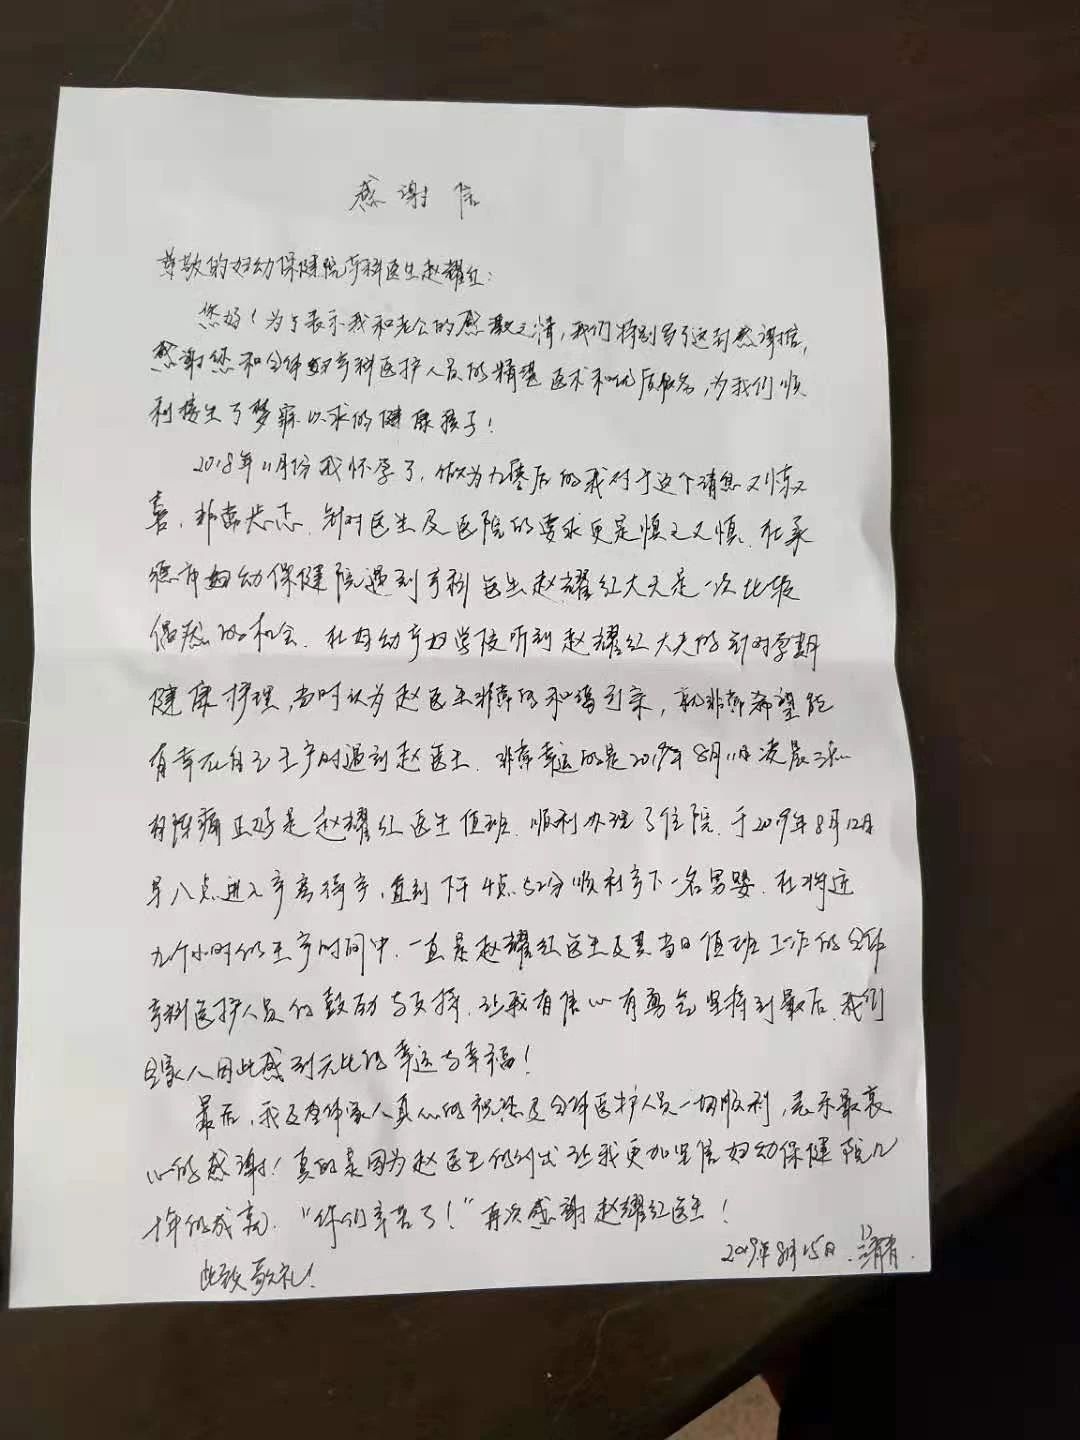 感谢信
尊敬的妇幼保健院产科医生赵耀红:
您好!为了表示我和老公的感激之情,我们特别写了这封感谢信,
感谢您和全体妇产科医护人员的精湛医术和优质服务,为我们顺
利接生了梦寐以求的健康孩子!
2018年11月份我怀孕了,做为九零后的我对于这个消息又惊又
喜,非常忐忑,针对医生及医院的要求更是慎之又慎.在承
德市妇幼保健院遇到产科医生赵耀红大夫是一次比较
偶然的机会.在妇幼孕妇学校听到赵耀红大夫的针对孕期
健康护理,当时认为赵医生非常的和蔼可亲,就非常希望能
有幸在自己生产时遇到赵医生.非常幸运的是2019年8月11日凌晨三点
有阵痛正好是赵耀红医生值班.顺利办理了住院.于2019年8月12日
早八点进入产房待产,直到下午4点52分顺利产下一名男婴.在将近
九个小时的生产时间中.一直是赵耀红医生及其当日值班工作的全体
产科医护人员的鼓励与支持.让我有信心有勇气坚持到最后.我们
全家人因此感到无比的幸运与幸福!
最后,我及全体家人真心的祝您及全体医护人员一切顺利,表示最衷
心的感谢!真的是因为赵医生的付出让我更加坚信妇幼保健院几
十年的成就."你们辛苦了!"再次感谢赵耀红医生!
此致敬礼!
2019年8月15日.